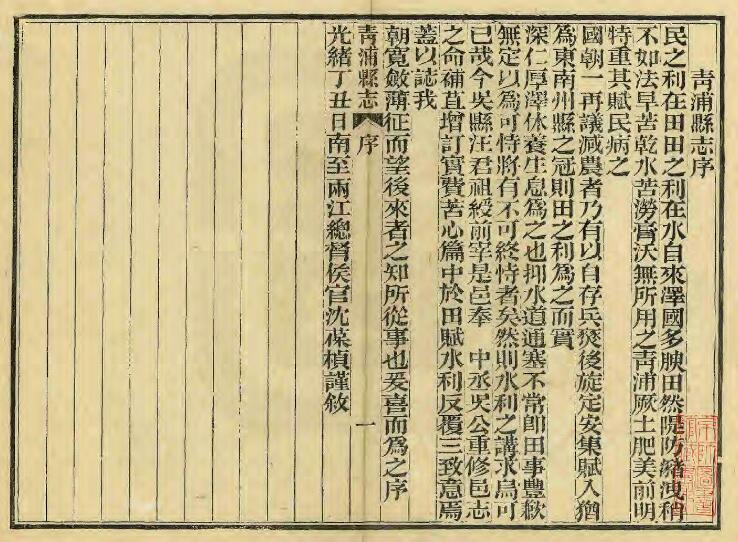 青浦縣志序
民之利在田田之利在水自來澤國多腴田然隄防瀦洩稍
不如法旱苦乾水苦澇膏沃無所用之青浦厥土肥美前明
特重其賦民病之
國朝一再議減農者乃有以自存兵燹後旋定安集賦入猶
為東南州縣之冠則田之利為之而實
深仁厚澤休養生息為之也抑水道通塞不常即田事豐歉
無定以為可恃將有不可終恃者矣然則水利之講求烏可
已哉今吳縣汪君祖綬前宰是邑奉　中丞吳公重修邑志
之命補苴增訂實費苦心篇中於田賦水利反覆三致意焉
蓋以誌我
青浦縣志　序　一
朝寬斂薄征而望後來者之知所從事也爰喜而為之序
光緒丁丑日南至兩江總督侯官沈葆楨謹敘